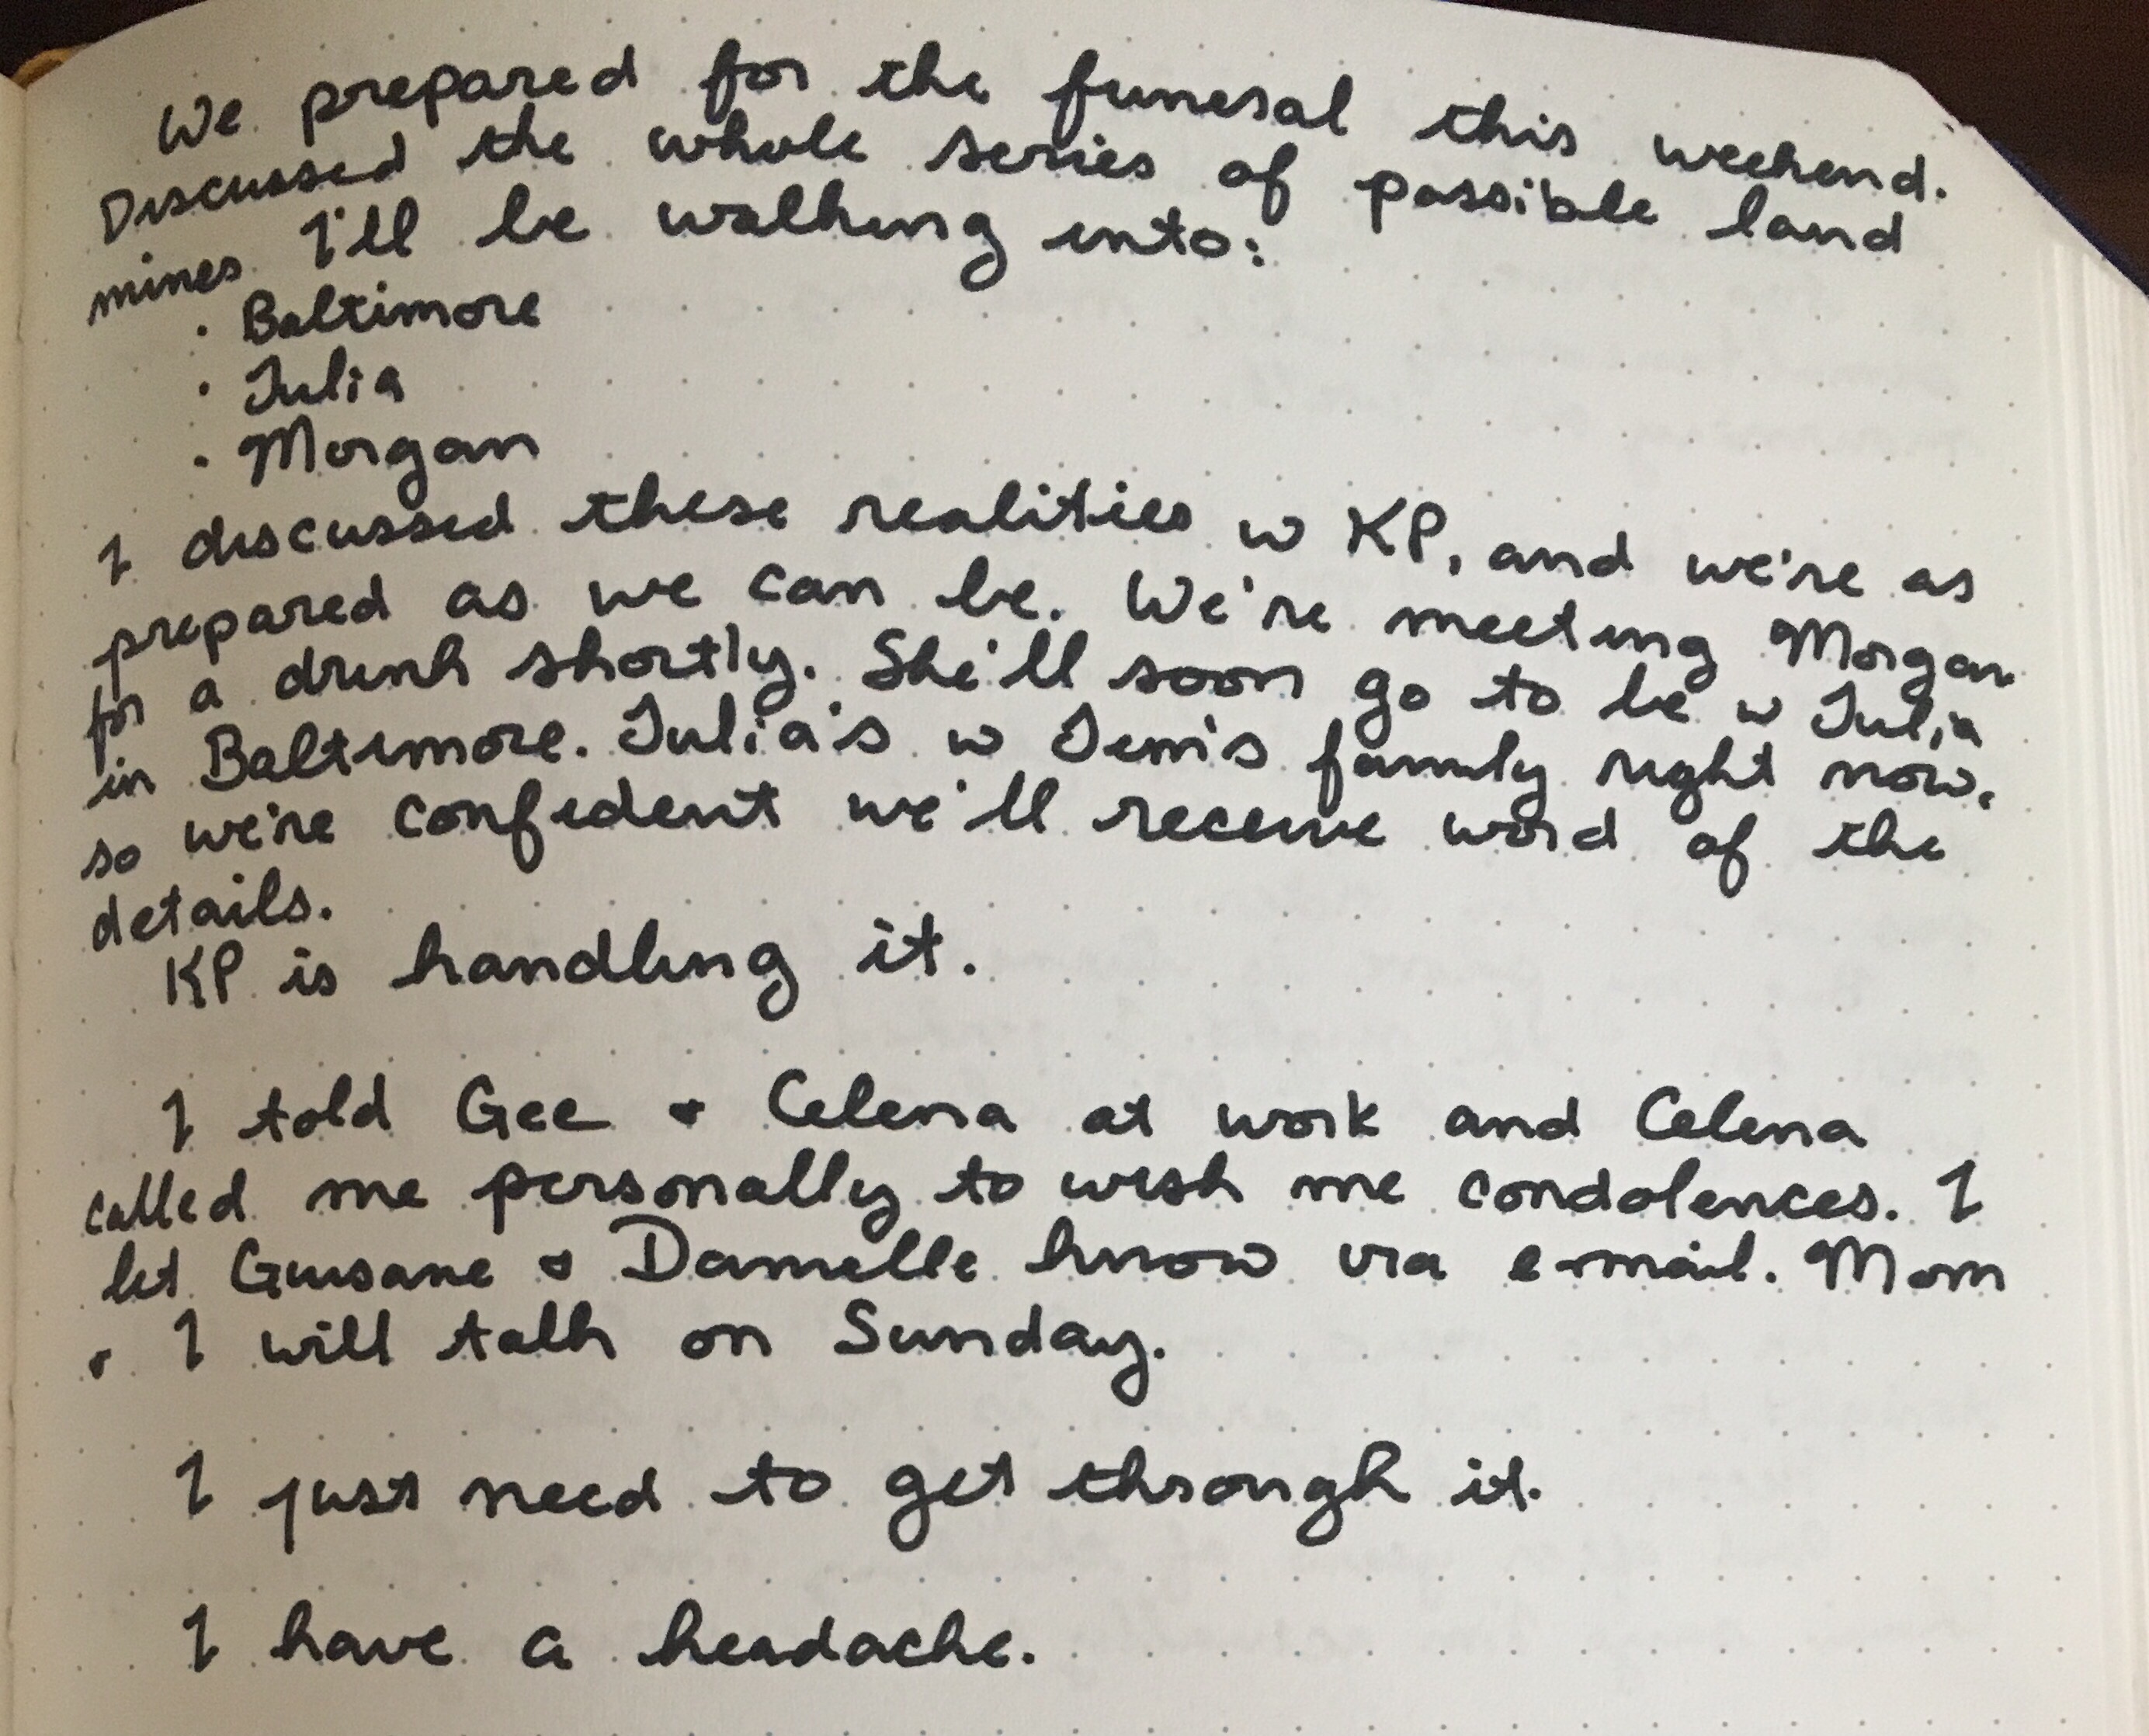 We prepared for the funeral this weekend.
Discussed the whole series of possible land
mines I'll be walking into:
· Baltimore
· Julia
· Morgan
I discussed these realities w KP, and we're as
prepared as we can be. We're meeting Morgan
for a drink shortly. She'll soon go to be w Julia
in Baltimore. Julia's w family right now,
so we're confident we'll receive word of the
details.
KP is handling it.
I told Gee & Celena at work and Celena
called me personally to wish me condolences. I
let & Danielle know via e-mail. Mom
& I will talk on Sunday.
I just need to get through it.
I have a headache.